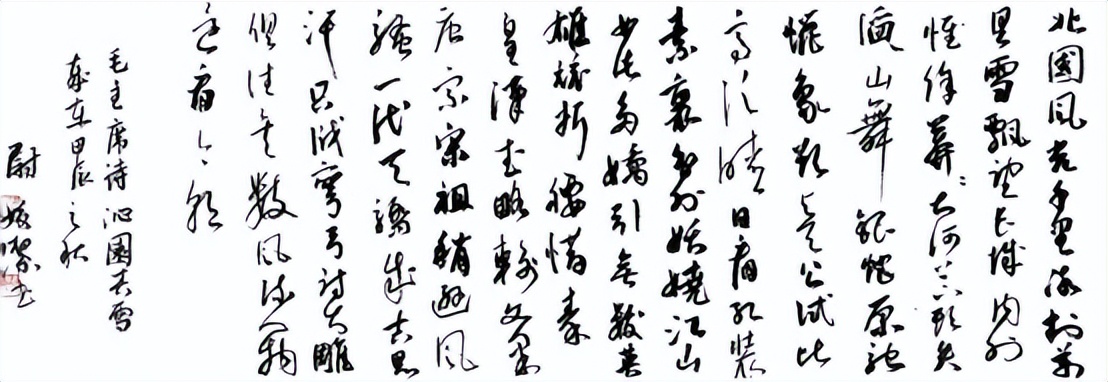 北國风光千里冰封萬
里雪飘望长城内外
惟馀莽々大河上下顿失
滔々山舞银蛇原驰
蜡象欲与天公试比
高须晴日看红装
素裹分外妖娆江山
如此多娇引无数英
雄竞折腰惜秦
皇漢武略输文采
唐宗宋祖稍逊风
骚一代天骄成吉思
汗只识弯弓射大雕
俱往矣数风流人物
还看今朝
毛主席诗沁園春雪
歲在甲辰之秋
尉